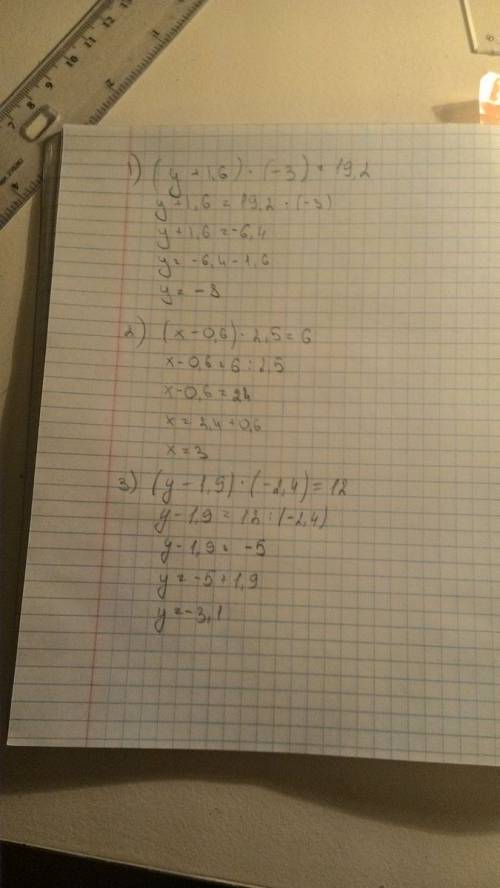 1) (y + 1,6) · (-3) = 19,2
y + 1,6 = 19,2 · (-3)
y + 1,6 = -6,4
y = -6,4 - 1,6
y = -8
2) (x - 0,6) · 2,5 = 6
x - 0,6 = 6 : 2,5
x - 0,6 = 24
x = 2,4 + 0,6
x = 3
3) (y - 1,9) · (-2,4) = 12
y - 1,9 = 12 : (-2,4)
y - 1,9 = -5
y = -5 + 1,9
y = -3,1